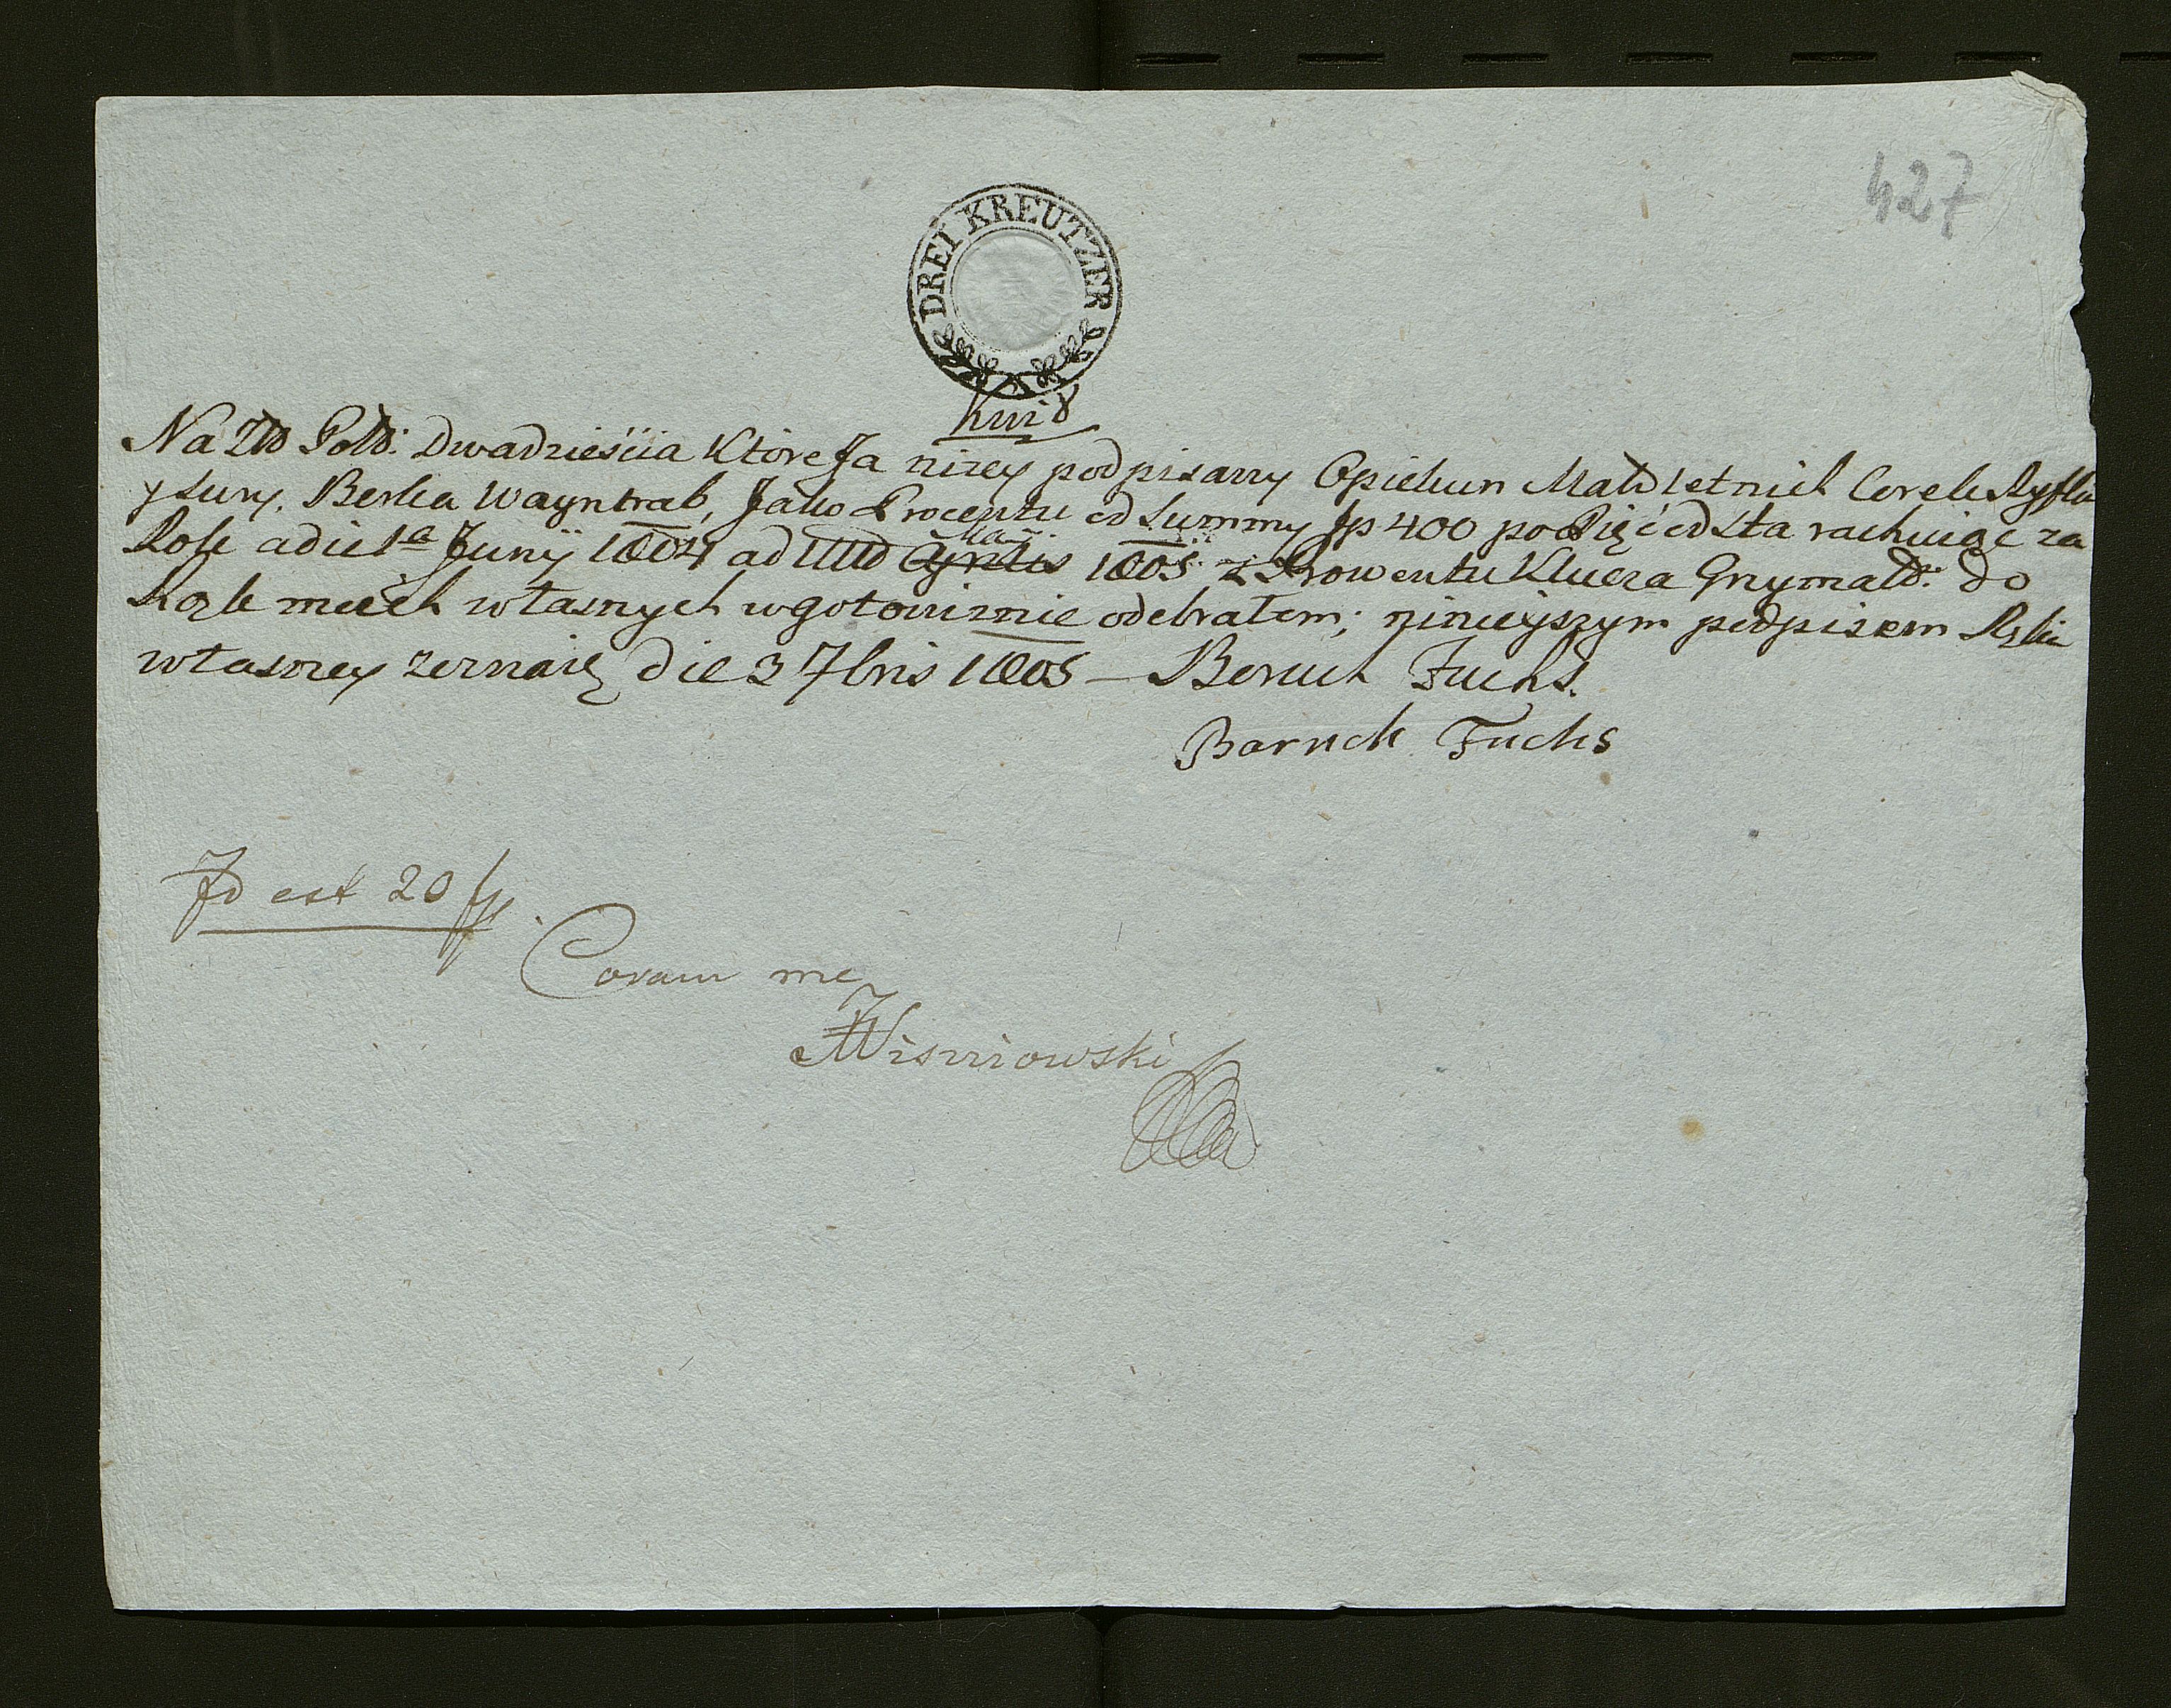 427
DREI KREUTZER
Kwit
Na Złł Polł: Dwadzieścia Które Ja nizey podpisany Opiekun Małoletnich Corek Ryfki
y Sury. Berka Wayntrab, Jako Procentu od Summy fp 400 po Pięć od Sta rachuiąc za
Rok a die 1a Junÿ 1804 ad Aprilis Maÿ 1805 z Prowentu Klucza Grymałł: do
Rąk moich własnych w gotowiznie odebrałem; ninieyszym podpisem Ręki
własney zeznaię die 3 7bris 1805 – Beruch Fuchs.
Baruch Fuchs
Id est 20 fp.
Coram me
Wisniowski